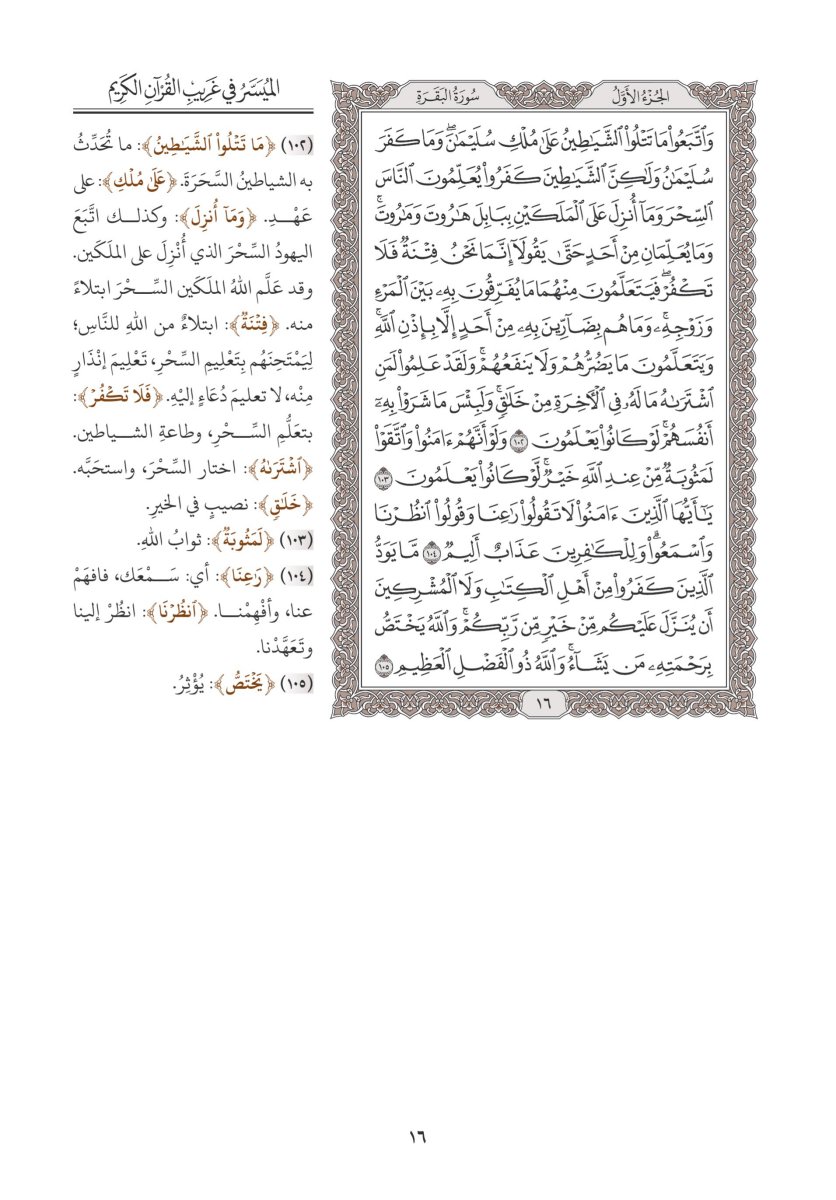 الجُزْءُ الأَوَّلُ
سُورَةُ البَقَرَةِ
وَٱتَّبَعُواْ مَا تَتْلُواْ ٱلشَّيَٰطِينُ عَلَىٰ مُلْكِ سُلَيْمَٰنَۖ وَمَا كَفَرَ
سُلَيْمَٰنُ وَلَٰكِنَّ ٱلشَّيَٰطِينَ كَفَرُواْ يُعَلِّمُونَ ٱلنَّاسَ
ٱلسِّحْرَ وَمَآ أُنزِلَ عَلَى ٱلْمَلَكَيْنِ بِبَابِلَ هَٰرُوتَ وَمَٰرُوتَۚ
وَمَا يُعَلِّمَانِ مِنْ أَحَدٍ حَتَّىٰ يَقُولَآ إِنَّمَا نَحْنُ فِتْنَةٌ فَلَا
تَكْفُرْۖ فَيَتَعَلَّمُونَ مِنْهُمَا مَا يُفَرِّقُونَ بِهِۦ بَيْنَ ٱلْمَرْءِ
وَزَوْجِهِۦۚ وَمَا هُم بِضَآرِّينَ بِهِۦ مِنْ أَحَدٍ إِلَّا بِإِذْنِ ٱللَّهِۚ
وَيَتَعَلَّمُونَ مَا يَضُرُّهُمْ وَلَا يَنفَعُهُمْۚ وَلَقَدْ عَلِمُواْ لَمَنِ
ٱشْتَرَىٰهُ مَا لَهُۥ فِي ٱلْأٓخِرَةِ مِنْ خَلَٰقٍۚ وَلَبِئْسَ مَا شَرَوْاْ بِهِۦٓ
أَنفُسَهُمْۚ لَوْ كَانُواْ يَعْلَمُونَ ١٠٢ وَلَوْ أَنَّهُمْ ءَامَنُواْ وَٱتَّقَوْاْ
لَمَثُوبَةٌ مِّنْ عِندِ ٱللَّهِ خَيْرٌۚ لَّوْ كَانُواْ يَعْلَمُونَ ١٠٣
يَٰٓأَيُّهَا ٱلَّذِينَ ءَامَنُواْ لَا تَقُولُواْ رَٰعِنَا وَقُولُواْ ٱنظُرْنَا
وَٱسْمَعُواْۗ وَلِلْكَٰفِرِينَ عَذَابٌ أَلِيمٌ ١٠٤ مَّا يَوَدُّ
ٱلَّذِينَ كَفَرُواْ مِنْ أَهْلِ ٱلْكِتَٰبِ وَلَا ٱلْمُشْرِكِينَ
أَن يُنَزَّلَ عَلَيْكُم مِّنْ خَيْرٍ مِّن رَّبِّكُمْۚ وَٱللَّهُ يَخْتَصُّ
بِرَحْمَتِهِۦ مَن يَشَآءُۚ وَٱللَّهُ ذُو ٱلْفَضْلِ ٱلْعَظِيمِ ١٠٥
١٦
المُيَسَّرُ في غَرِيبِ القُرْآنِ الكَرِيمِ
(١٠٢) ﴿مَا تَتْلُواْ ٱلشَّيَٰطِينُ﴾: ما تُحَدِّثُ
به الشياطينُ السَّحَرَةَ. ﴿عَلَىٰ مُلْكِ﴾: على
عَهْدِ. ﴿وَمَآ أُنزِلَ﴾: وكذلك اتَّبَعَ
اليهودُ السِّحْرَ الذي أُنْزِلَ على الملَكَين.
وقد عَلَّم اللهُ الملَكَين السِّحْرَ ابتلاءً
منه. ﴿فِتْنَةٌ﴾: ابتلاءٌ من اللهِ للنَّاسِ؛
لِيَمْتَحِنَهُم بِتَعْلِيمِ السِّحْرِ، تَعْلِيمَ إنْذَارٍ
مِنْه، لا تعليمَ دُعَاءٍ إليْهِ. ﴿فَلَا تَكْفُرْ﴾:
بتعلُّمِ السِّحْرِ، وطاعةِ الشياطين.
﴿ٱشْتَرَىٰهُ﴾: اختار السِّحْرَ، واستحَبَّه.
﴿خَلَٰقٍ﴾: نصيبٍ في الخيرِ.
(١٠٣) ﴿لَمَثُوبَةٌ﴾: ثوابُ اللهِ.
(١٠٤) ﴿رَٰعِنَا﴾: أي: سَمْعَك، فافهَمْ
عنا، وأفْهِمْنا. ﴿ٱنظُرْنَا﴾: انظُرْ إلينا
وتَعَهَّدْنا.
(١٠٥) ﴿يَخْتَصُّ﴾: يُؤْثِرُ.
١٦